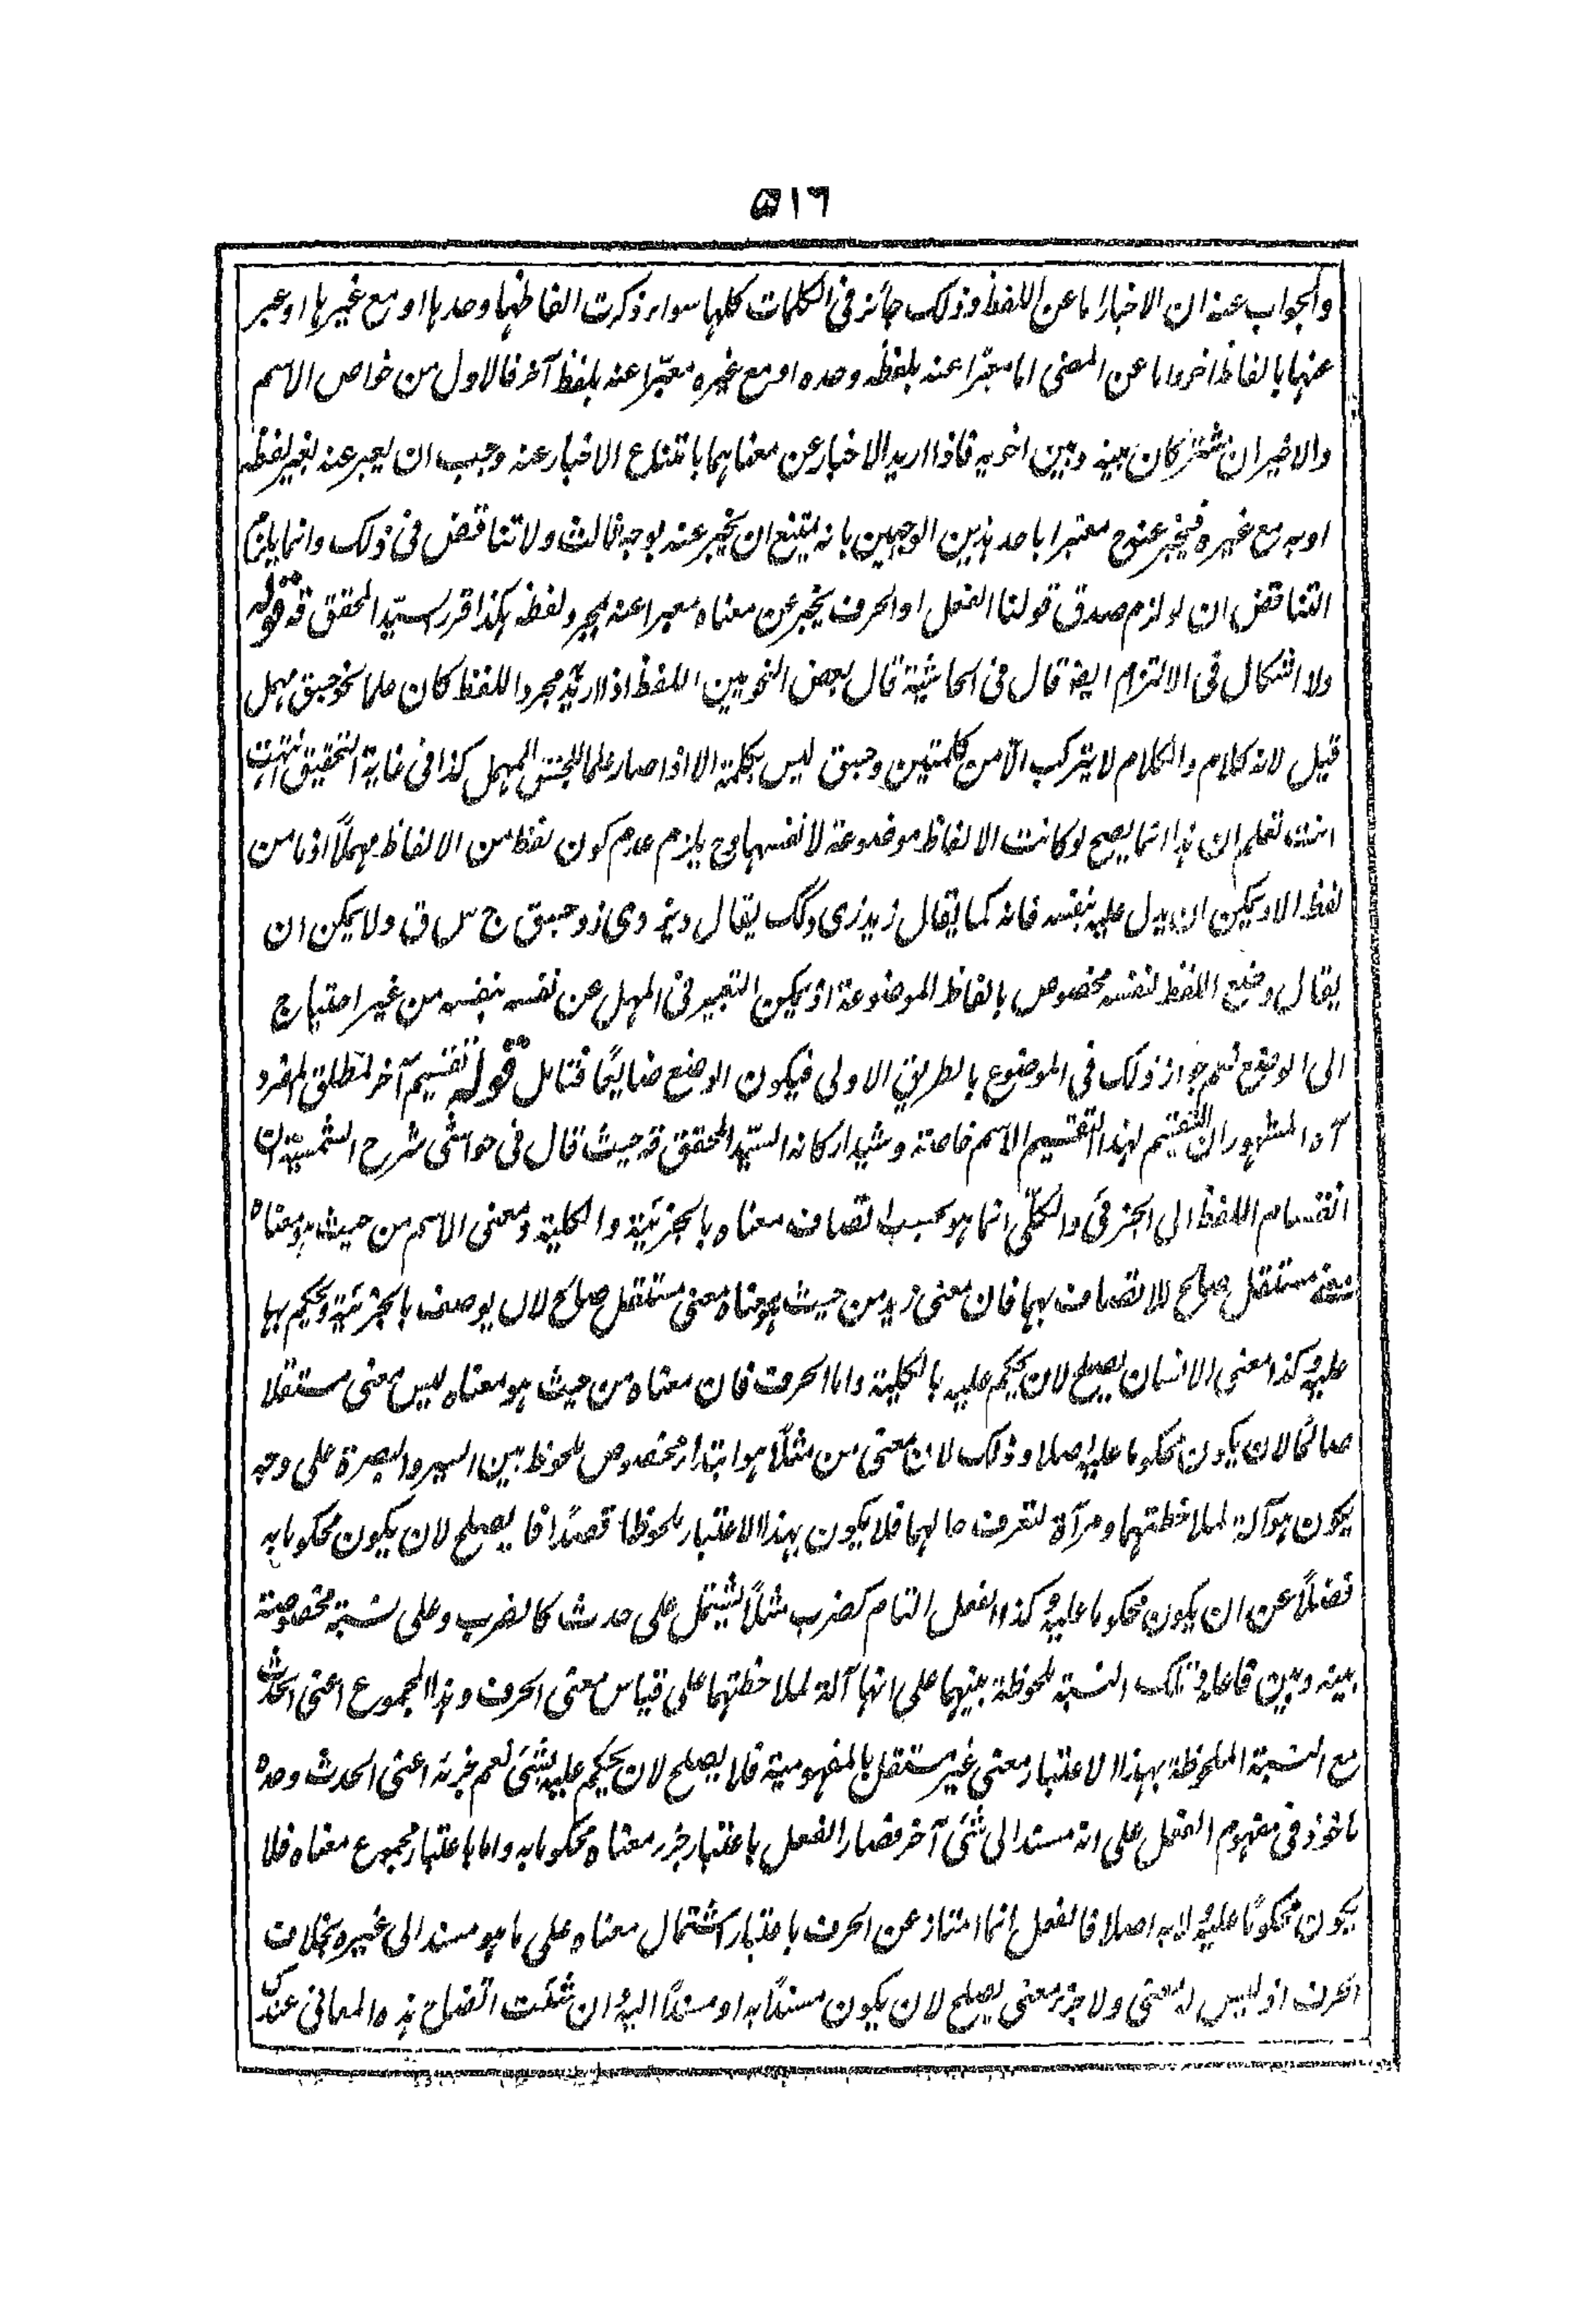 ٥١٦
والجواب عنه ان الاخبار اما عن اللفظ وذلك جائز فى الكلمات كلها سواء ذكرت الفاظها وحدها او مع غيرها او عبر
عنها بالفاظ اخر واما عن المعنى اما معبّرا عنه بلفظه وحده او مع غيره معبّرا عنه بلفظ آخر فالاول من خواص الاسم
والاخيران مشتركان بينه وبين اخويه فاذا اريد الاخبار عن معناهما بامتناع الاخبار عنه وجب ان يعبر عنه بغير لفظه
او به مع غيره فيخبر عنه ح معتبرا باحد هذين الوجهين بانه يمتنع ان يخبر عنه بوجه ثالث ولا تناقض فى ذلك وانما يلزم
التناقض ان لو لزم صدق قولنا الفعل او الحرف يخبر عن معناه معبرا عنه بمجرد لفظه هكذا قرر السيّد المحقق قه قوله
ولا اشكال فى الالتزام ايضا قال فى الحاشية قال بعض النحويين اللفظ اذا اريد مجرد اللفظ كان علما نحو جسق مهمل
قيل لانه كلام والكلام لا يتركب الّا من كلمتين وجسق ليس بكلمة الا اذا صار علما للجنس المهمل كذا فى غاية التحقيق انتهت
انت تعلم ان هذا انما يصح لو كانت الالفاظ موضوعة لانفسها وح يلزم عدم كون لفظ من الالفاظ مهملًا اذ ما من
لفظ الا ويمكن ان يدل عليه بنفسه فانه كما يقال زيد زى وكك يقال ديز دى ز وجسق ج س ق ولا يمكن ان
يقال وضع اللفظ لنفسه مخصوص بالفاظ الموضوعة اذ يمكن التعبير فى المهمل عن نفسه بنفسه من غير احتياج
الى الوضع فلم جواز ذلك فى الموضوع بالطريق الاولى فيكون الوضع ضايعًا فتامل قوله تقسيم آخر لمطلق المفرد
آه المشهور ان التقسيم بهذا التقسيم الاسم خاصة وشيد اركانه السيّد المحقق قه حيث قال فى حواشى شرح الشمسية ان
انقسام اللفظ الى الجزئى والكلّى انما هو بحسب اتصاف معناه بالجزئية والكلية ومعنى الاسم من حيث هو معناه
معنى مستقل صالح للاتصاف بهما فان معنى زيد من حيث هو معناه معنى مستقل صالح لان يوصف بالجزئية ويحكم بها
عليه وكذا معنى الانسان يصلح لان يحكم عليه بالكلية واما الحرف فان معناه من حيث هو معناه ليس معنى مستقلا
صالحًا لان يكون محكوما عليه اصلا وذلك لان معنى من مثلًا هو ابتداء مخصوص ملحوظ بين السير والبصرة على وجه
يكون هو آلة لملاحظتهما ومرآة لتعرف حالهما فلا يكون بهذا الاعتبار ملحوظا قصدًا فلا يصلح لان يكون محكوما به
فضلًا عن ان يكون محكوما عليه وكذا الفعل التام كضرب مثلًا يشتمل على حدث كالضرب وعلى نسبة مخصوصة
بينه وبين فاعله وتلك النسبة ملحوظة بينهما على انها آلة لملاحظتهما على قياس معنى الحرف وهذا المجموع اعنى الحدث
مع النسبة الملحوظة بهذا الاعتبار معنى غير مستقل بالمفهومية فلا يصلح لان يحكم عليه بشئ نعم جزئه اعنى الحدث وحده
ماخوذ فى مفهوم الفعل على انه مسند الى شئ آخر فصار الفعل باعتبار جزء معناه محكوما به واما باعتبار مجموع معناه فلا
يكون محكومًا عليه ولا به اصلا فالفعل انما امتاز عن الحرف باعتبار اشتمال معناه على ما هو مسند الى غيره بخلاف
الحرف اذ ليس له معنى ولا جزء معنى يصلح لان يكون مسندًا به او مسندًا اليه وان شئت اتضاح هذه المعانى عندك